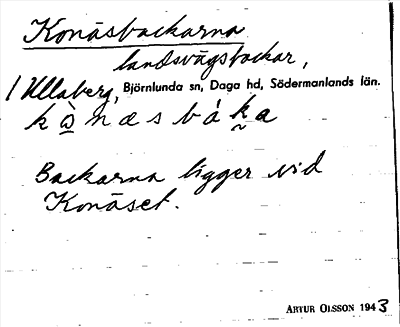 Konäsbackarna
landsvägsbackar,
/ Ullaberg, Björnlunda sn, Daga hd, Södermanlands län.
Backarna ligger vid
Konäset.
ARTUR OLSSON 1943